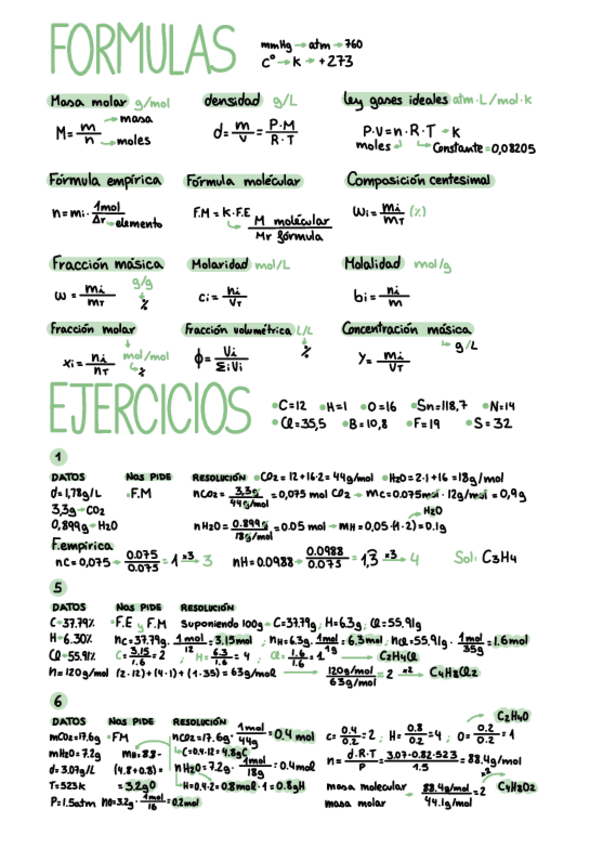 FORMULAS
mmHg → atm → 760
C° → K → +273
Masa molar g/mol
M = m/n → masa → moles
densidad g/L
d = m/v = P·M/R·T
ley gases ideales atm·L/mol·K
P·V = n·R·T → K
moles Constante = 0,08205
Fórmula empírica
n = mi · 1mol/Ar → elemento
Fórmula molécular
F.M = K·F.E
M molécular/Mr fórmula
Composición centesimal
Wi = mi/mT (%)
Fracción másica g/g
ω = mi/mT %
Molaridad mol/L
ci = ni/VT
Molalidad mol/g
bi = ni/m
Fracción molar
xi = ni/nT mol/mol %
Fracción volumétrica L/L
ϕ = Vi/ΣiVi %
Concentración másica
g/L
γ = mi/VT
EJERCICIOS
•C=12 •H=1 •O=16 •Sn=118,7 •N=14
•Cl=35,5 •B=10,8 •F=19 •S=32
1
DATOS
d=1,78g/L
3,3g → CO2
0,899g → H2O
NOS PIDE
·F.M
RESOLUCIÓN •CO2 = 12+16·2 = 44g/mol •H2O = 2·1+16 = 18g/mol
nCO2 = 3,3g/44g/mol = 0,075 mol CO2 → mC = 0.075mol · 12g/mol = 0,9g
H2O
nH2O = 0.899g/18g/mol = 0.05 mol → mH = 0,05·(1·2) = 0.1g
F.empírica
nC = 0,075 → 0.075/0.075 = 1 ×3 → 3 nH = 0.0988 → 0.0988/0.075 = 1,3 ×3 → 4 Sol: C3H4
5
DATOS
C=37.79%
H=6.30%
Cl=55.91%
M=120g/mol
NOS PIDE
·F.E y F.M
RESOLUCIÓN
Suponiendo 100g → C=37.79g; H=6.3g; Cl=55.91g
nC = 37.79g · 1mol/12 = 3.15mol ; nH = 6.3g · 1mol/1g = 6.3mol ; nCl = 55.91g · 1mol/35g = 1.6mol
C = 3.15/1.6 = 2 ; H = 6.3/1.6 = 4 ; Cl = 1.6/1.6 = 1 → C2H4Cl
(2·12)+(4·1)+(1·35) = 63g/mol → 120g/mol/63g/mol = 2 ×2 → C4H8Cl2
6
DATOS
mCO2=17.6g
mH2O=7.2g
d=3.07g/L
T=523k
P=1.5atm
NOS PIDE
·FM
mO=8.8-
(4.8+0.8)=
=3.2gO
nO=3.2g · 1mol/16 = 0.2mol
RESOLUCIÓN
nCO2 = 17.6g · 1mol/44g = 0.4 mol
C=0.4·12=4.8gC
nH2O = 7.2g · 1mol/18g = 0.4mol
H=0.4·2=0.8mol·1=0.8gH
C2H4O
C = 0.4/0.2 = 2 ; H = 0.8/0.2 = 4 ; O = 0.2/0.2 = 1
n = d.R.T/P = 3.07·0.82·523/1.5 = 88.4g/mol
masa molecular
masa molar
88.4g/mol/44.1g/mol = 2 ×2 C4H8O2